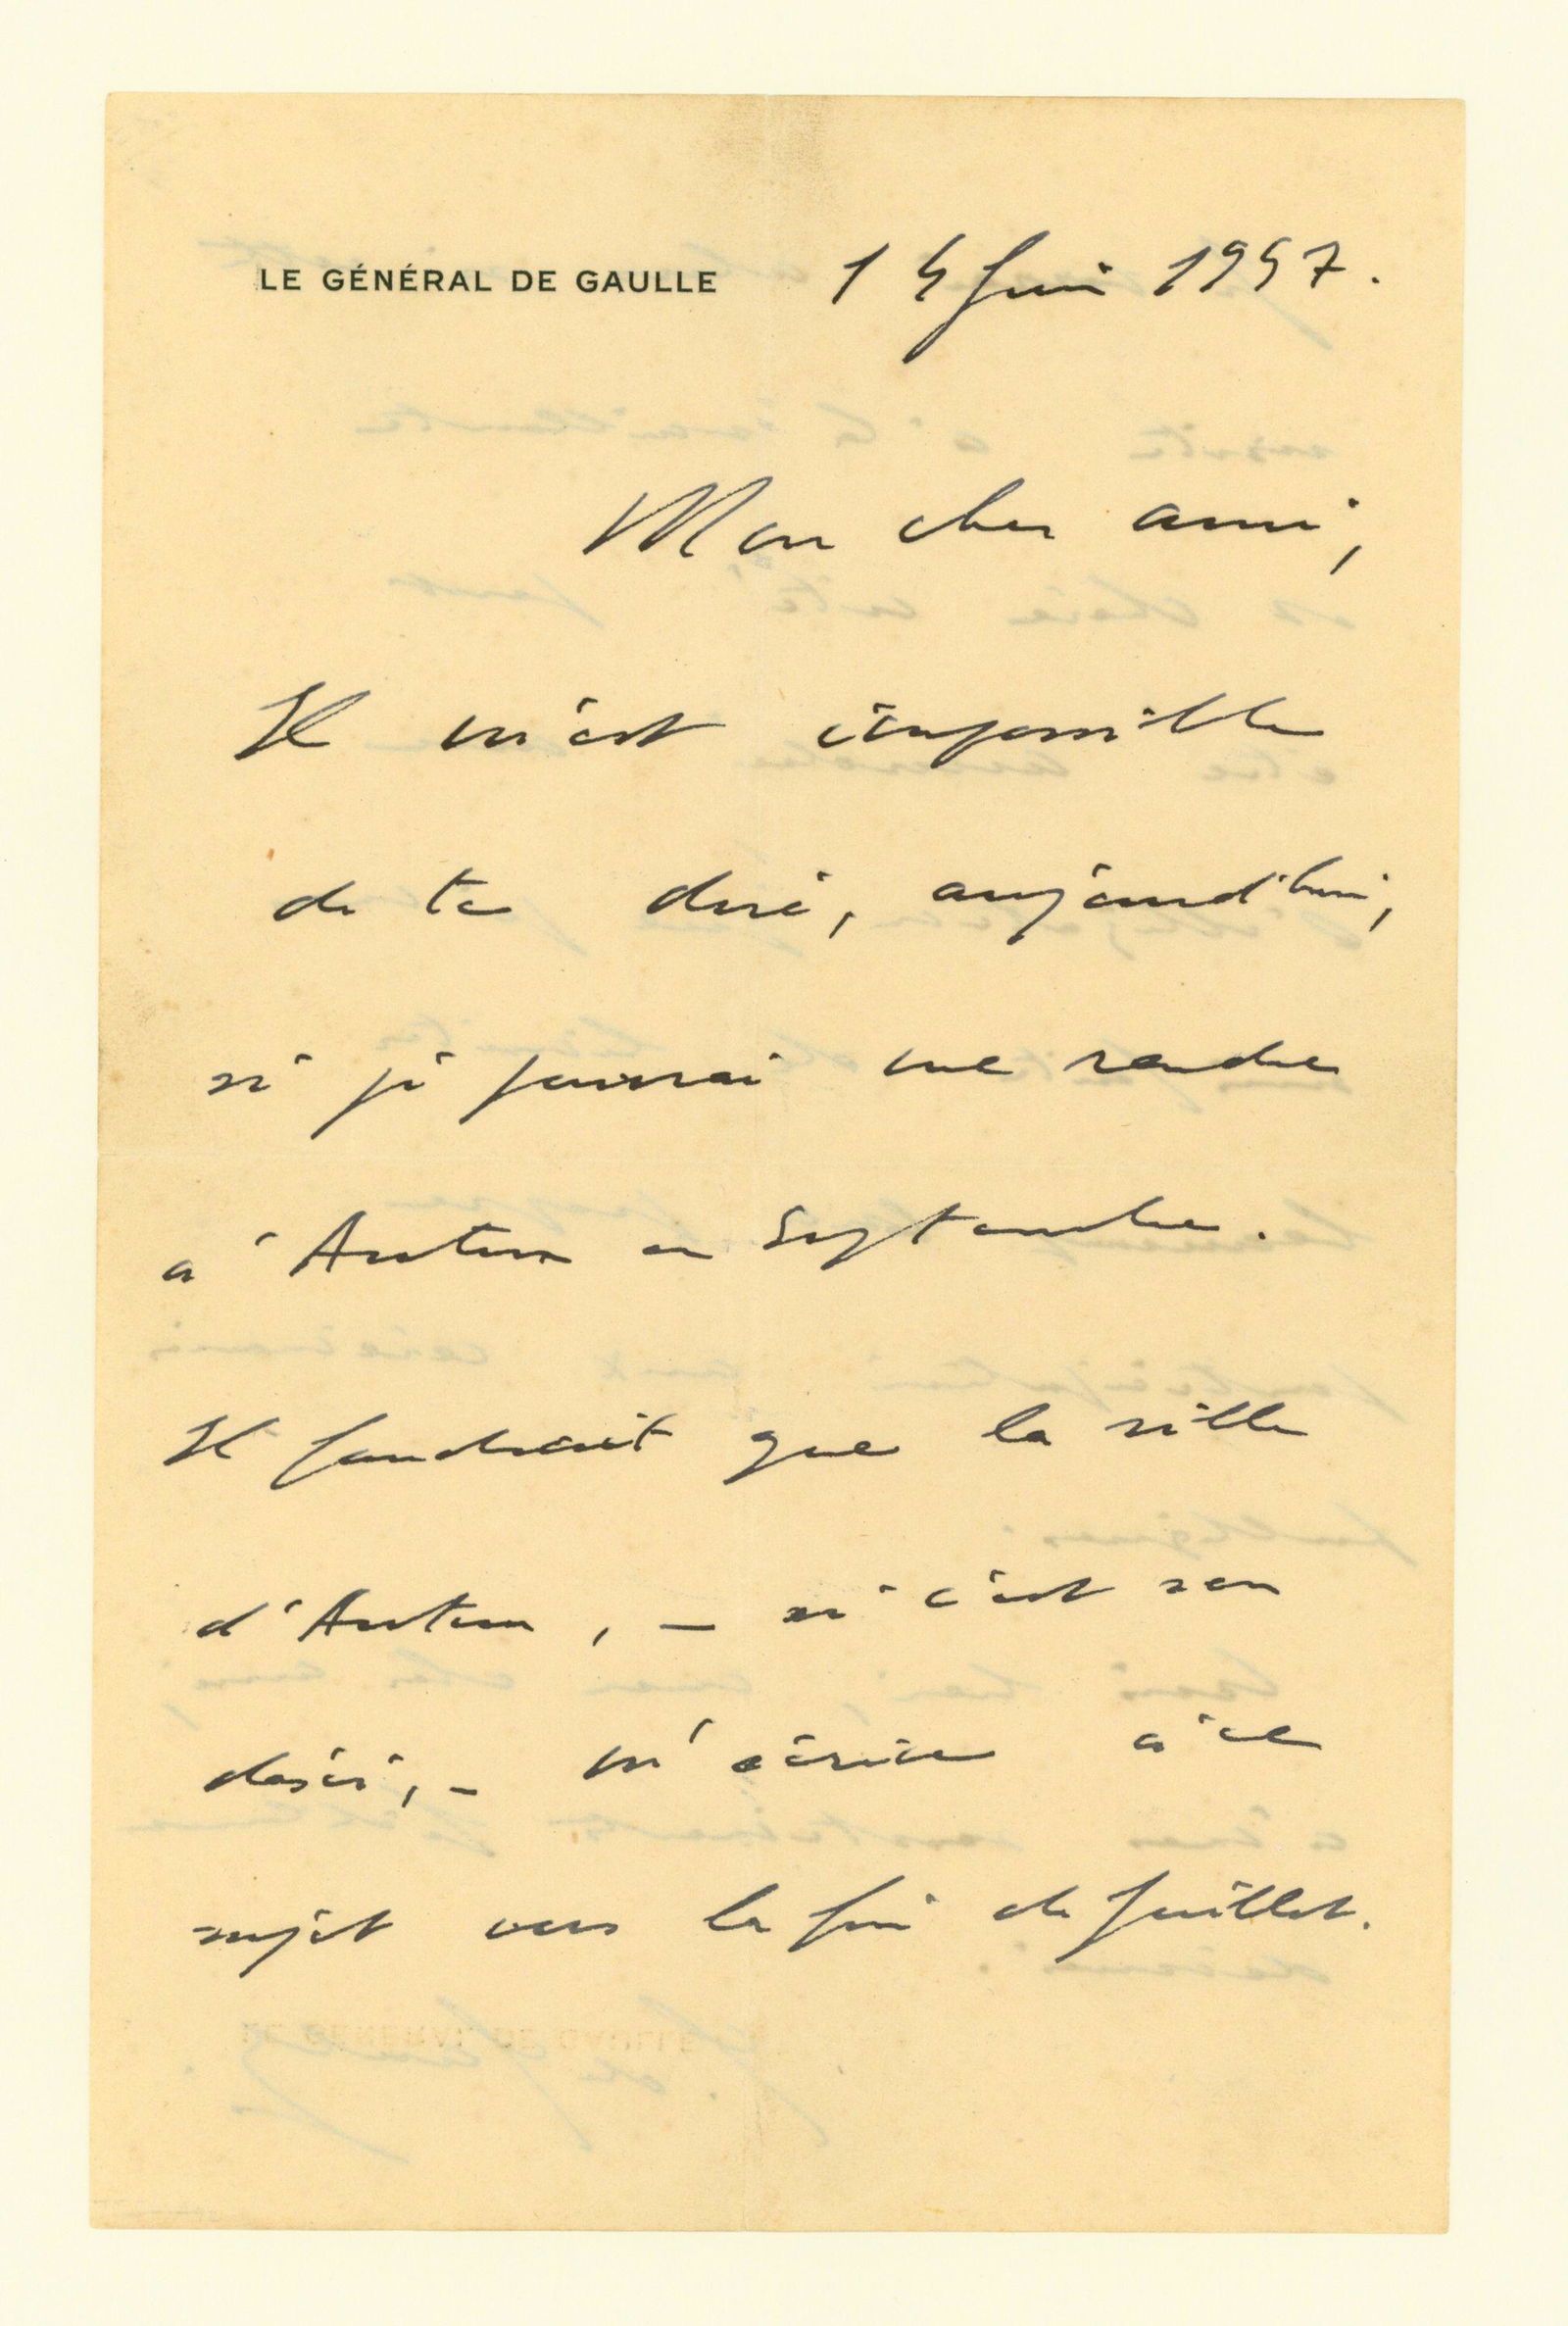 LE GÉNÉRAL DE GAULLE 14 Juin 1947.
Mon cher ami,
Il m'est impossible
de te dire, aujourd'hui,
si je pourrai me rendre
à Autun en Septembre.
Il faudrait que la ville
d'Autun, – si c'est son
désir, – m'écrive à ce
sujet vers la fin de Juillet.